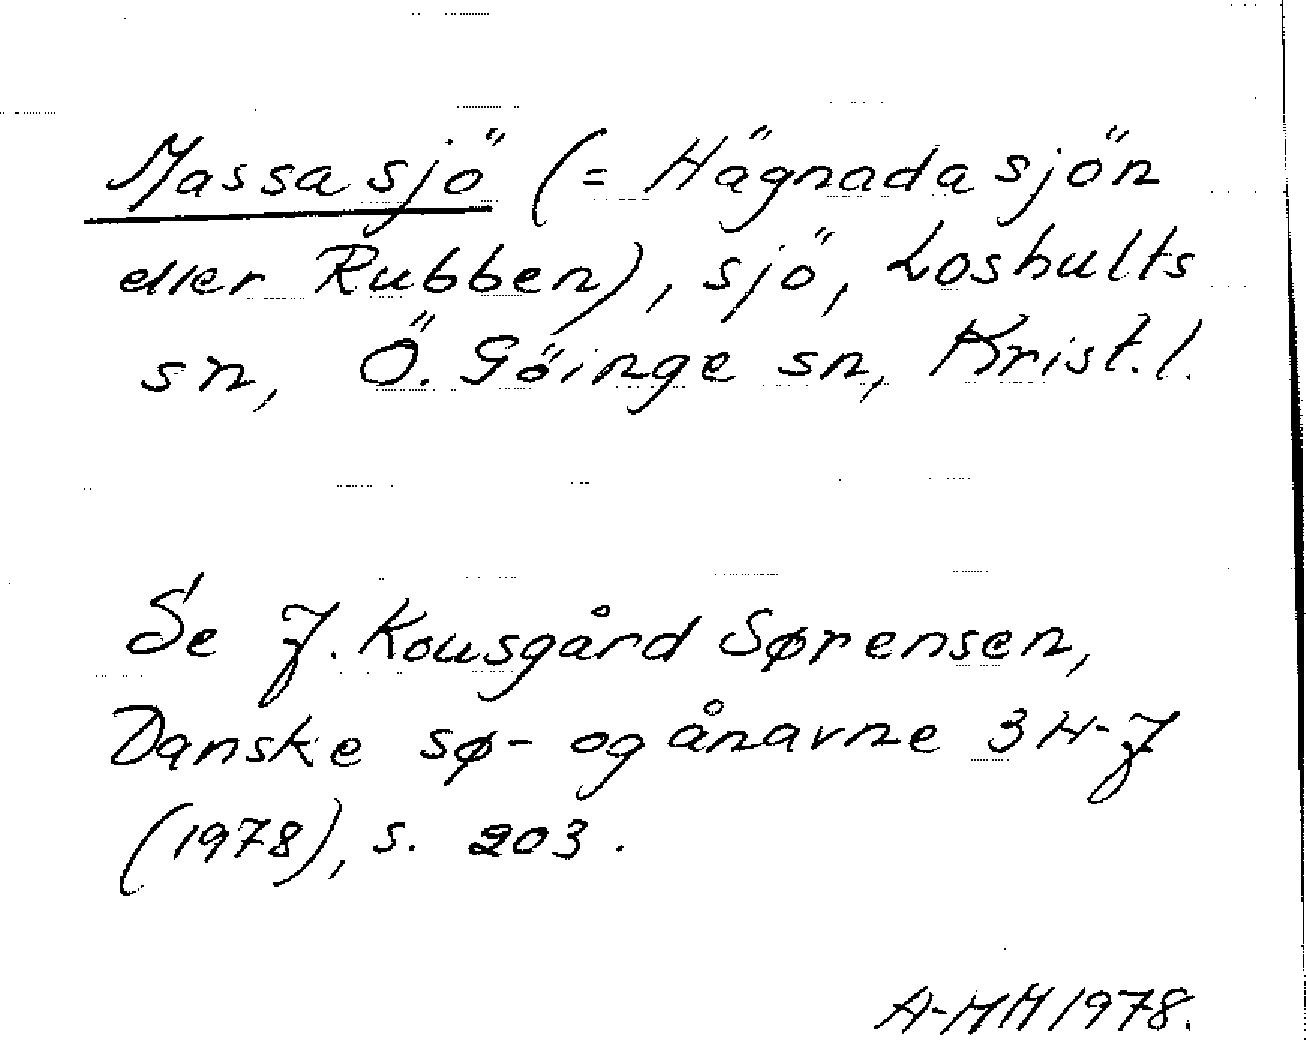 Massasjö (= Hägnadasjön
eller Rubben), sjö, Loshults
sn, Ö. Göinge sn, Krist. l.
Se J. Kousgård Sørensen,
Danske sø- og ånavne 3 H-J
(1978), s. 203.
A-MM 1978.